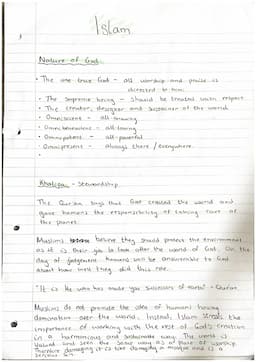 Islam
Nature of God:
• The one true God - all worship and praise is
directed to him.
• The Supreme being - should be treated with respect
• The creator, designer and sustainer of the world
• Omniscient - all-knowing
• Omnibenevolent - all-loving
• Omnipotent - all-powerful
• Omnipresent - always there / everywhere.
•
Khalifah - stewardship
The Quran says that God created the world and
gave humans the responsibility of taking care of
the planet.
Muslims believe they should protect the environment
as it is their job to look after the world of God. On the
day of judgement humans will be answerable to God
about how well they did this role.
"It is He who has made you successors of earth" - Quran.
Muslims do not promote the idea of humans having
domination over the world. Instead, Islam
importance of working with the rest of God's creation
in a harmonious and way. The world is
valued and seen the same way as a place of worship
therefore damaging it is like damaging a mosque and is a
serious sin.